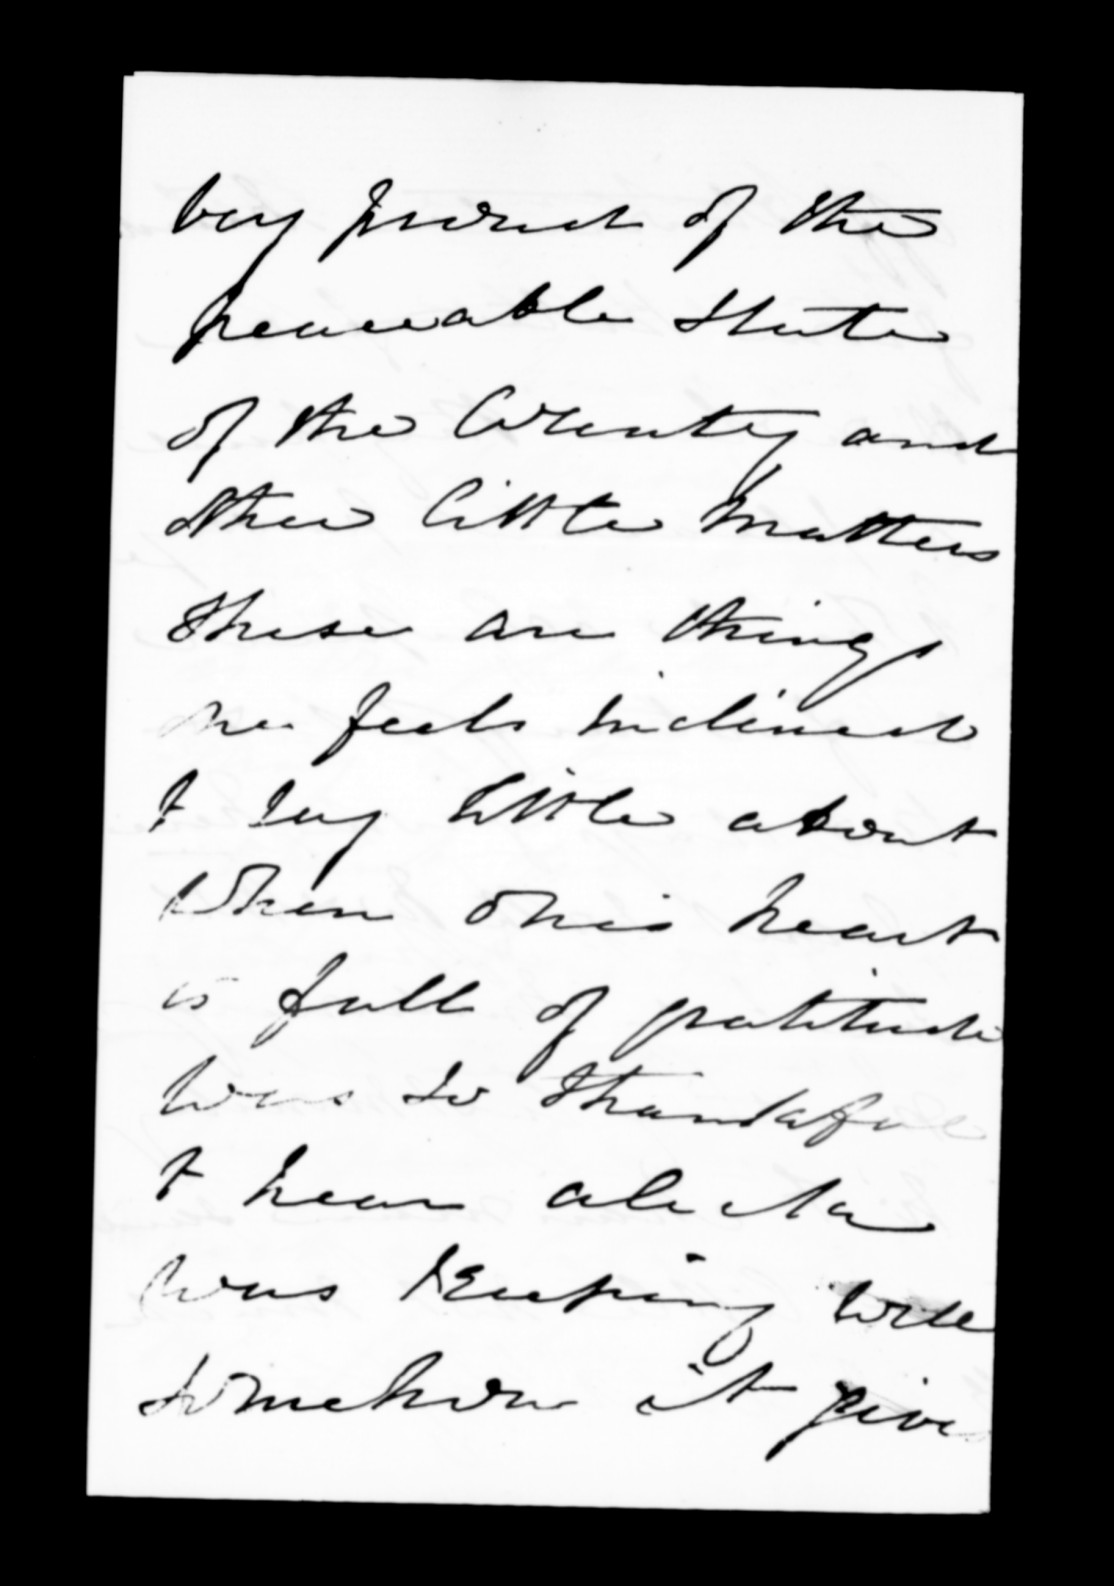 very proud of the
peaceable state
of the Country and
other little matters
these are things
one feels inclined
to say little about
when ones heart
is full of gratitude
was so thankful
to hear
was keeping well
somehow it give